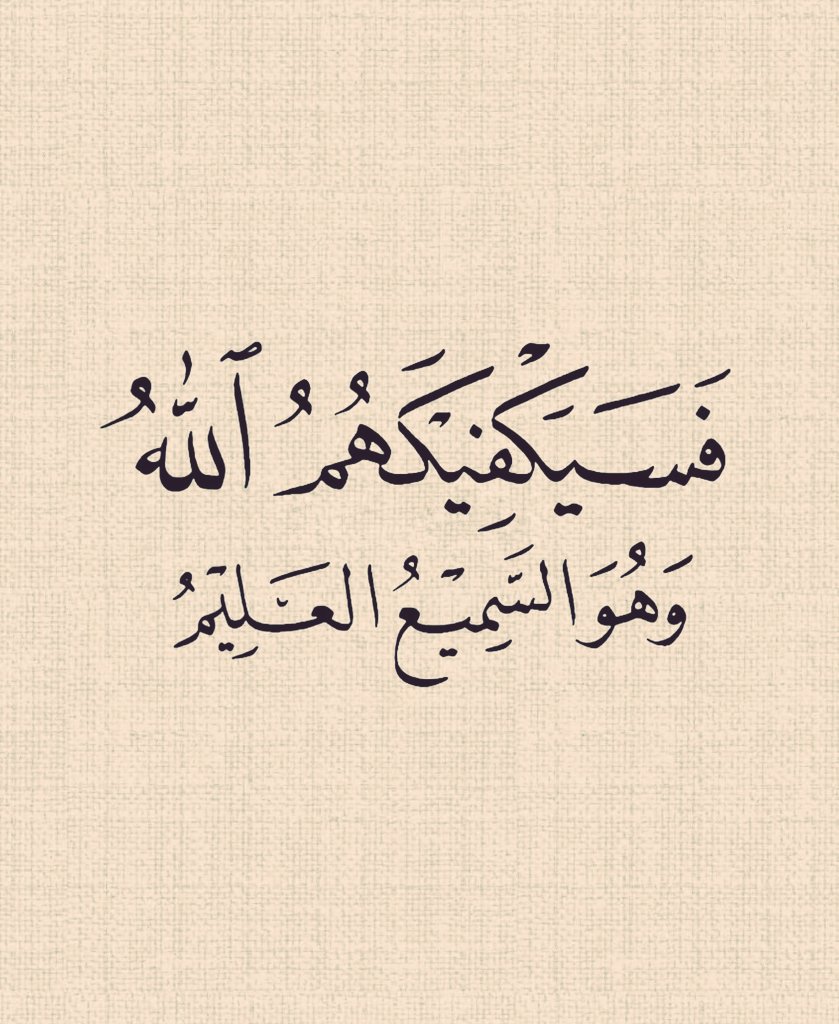 فَسَيَكْفِيكَهُمُ ٱللَّٰهُ
وَهُوَ السَّمِيْعُ العَلِيْمُ